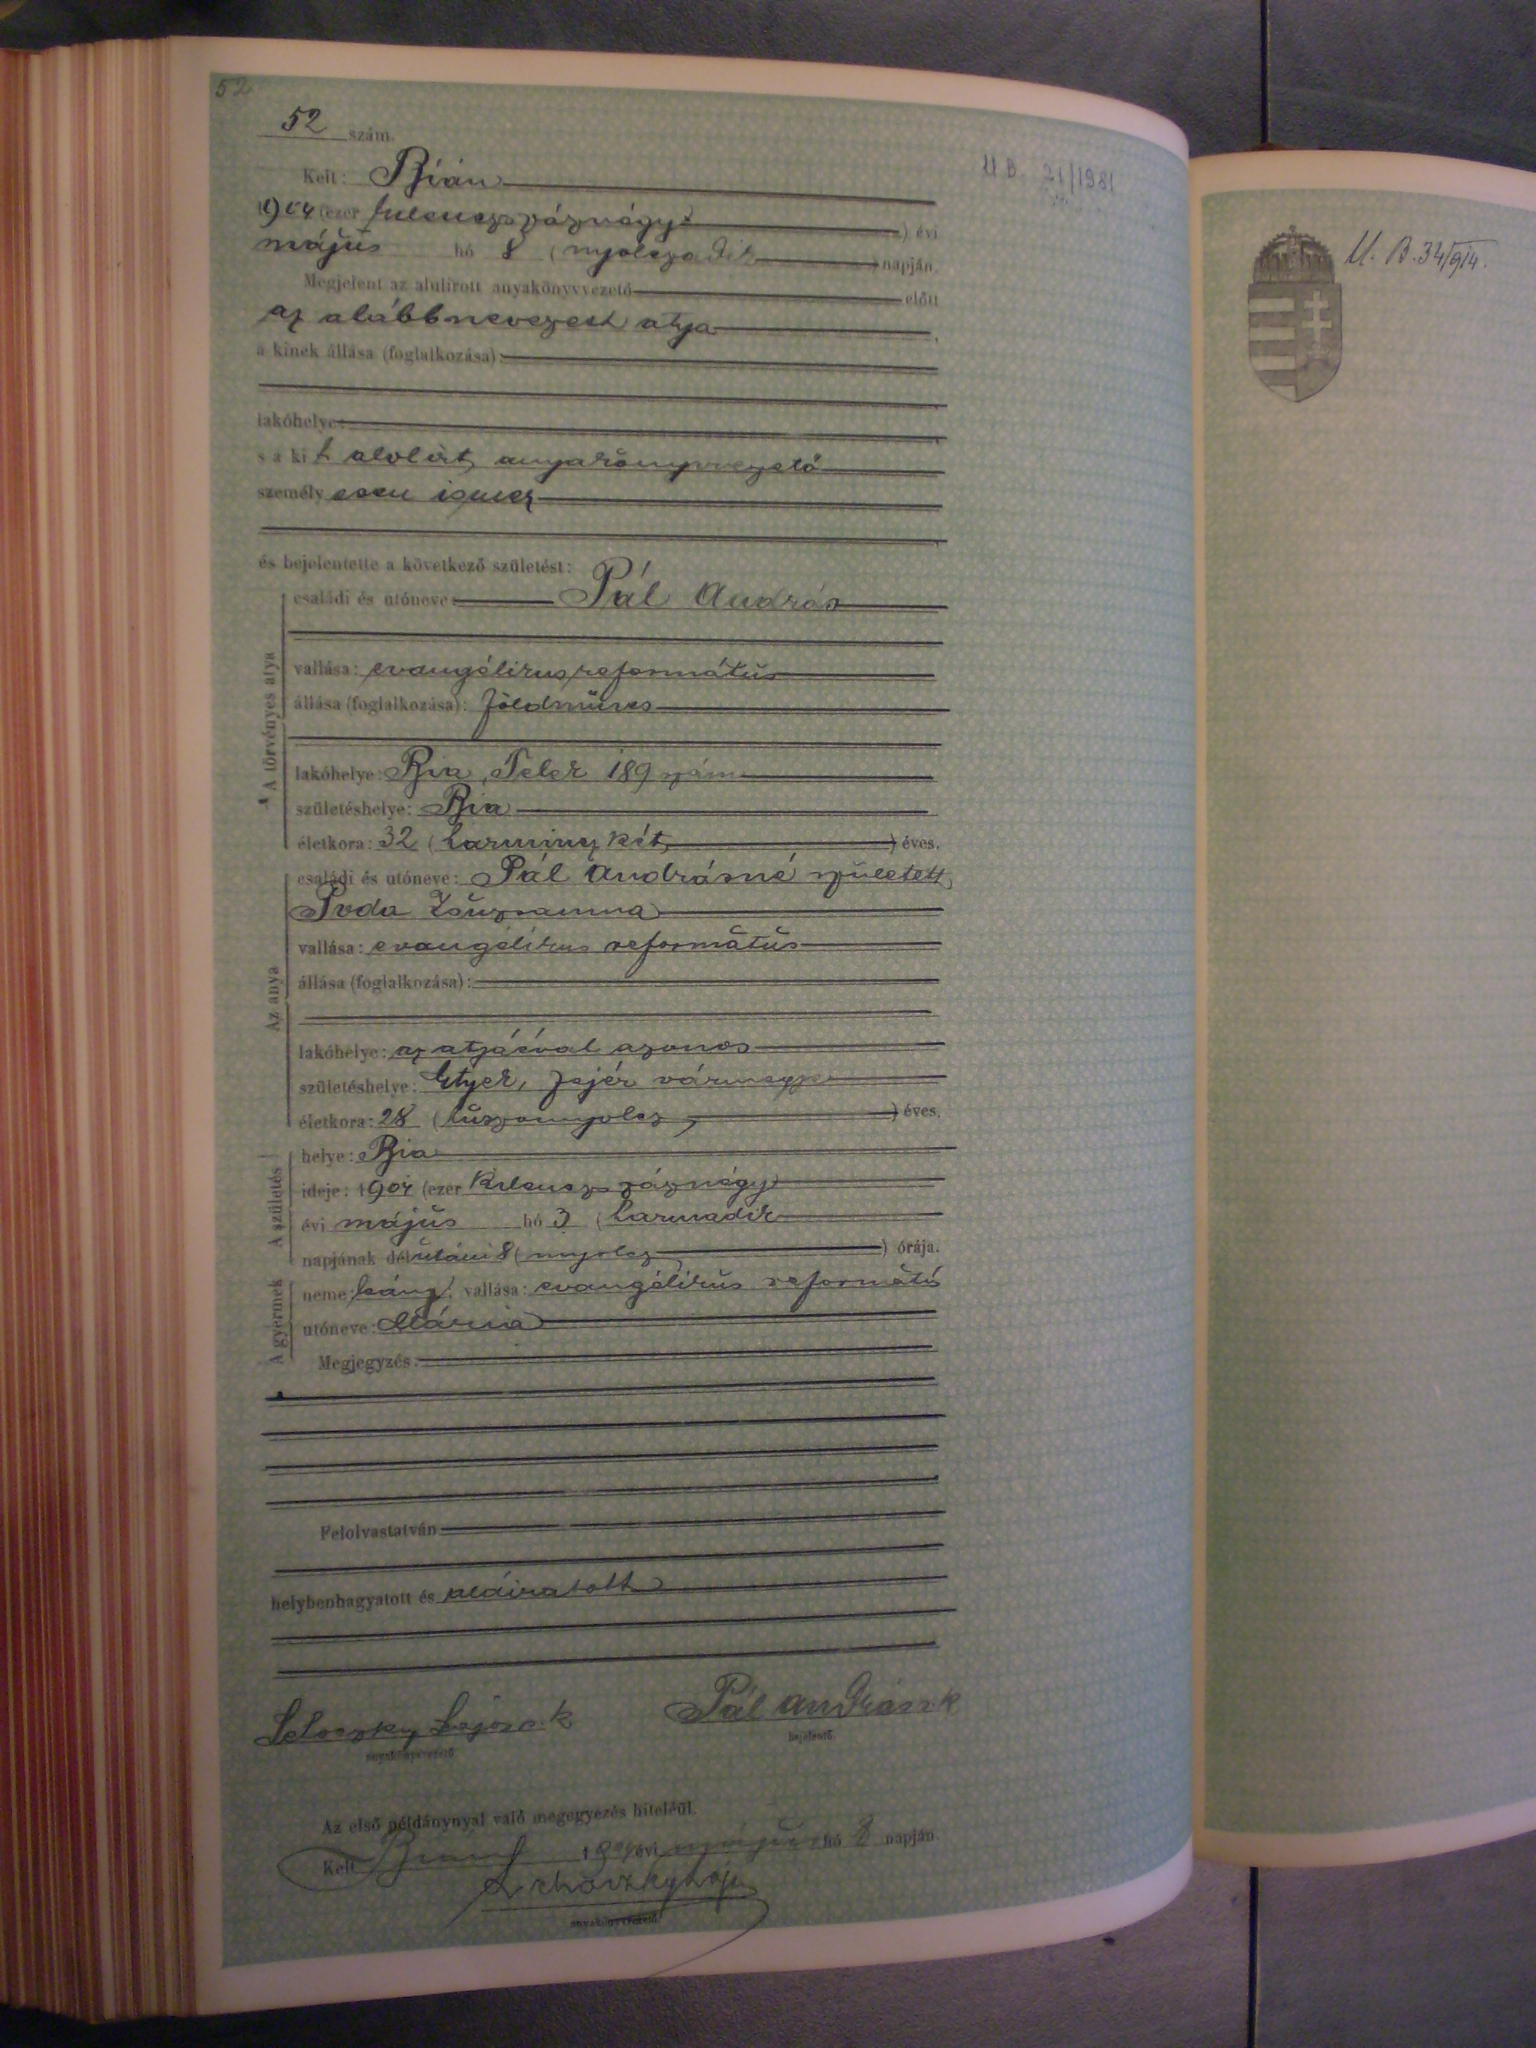 52
52 szám.
U B. 21/1981
Kelt: Bián
1904 (ezer kilenczszáznégy) évi
május hó 8 (nyolczadik) napján.
Megjelent az alulirott anyakönyvvezető előtt
az alább nevezett atya,
a kinek állása (foglalkozása):
lakóhelye:
s a kit alolirt anyakönyvvezető
személyesen ismer
és bejelentette a következő születést:
A törvényes atya
családi és utóneve: Pál András
vallása: evangélikus református
állása (foglalkozása): földmüves
lakóhelye: Bia, Telek 189 szám
születéshelye: Bia
életkora: 32 (harminczkét) éves.
Az anya
családi és utóneve: Pál Andrásné született
Zsuzsanna
vallása: evangélikus református
állása (foglalkozása):
lakóhelye: az atyáéval azonos
születéshelye: Etyek, Fejér vármegye
életkora: 28 (huszonnyolcz) éves.
A születés
helye: Bia
ideje: 1904 (ezer kilenczszáznégy)
évi május hó 3 (harmadik
napjának délutáni 8 (nyolcz) órája.
A gyermek
neme: leány, vallása: evangélikus református
utóneve: Mária
Megjegyzés:
Felolvastatván
helybenhagyatott és aláiratott
Lajos s. k
anyakönyvvezető
Pál András k
bejelentő
Az első példánynyal való megegyezés hiteléül.
Kelt Bián 1904 évi május hó 8 napján.
anyakönyvvezető
U. B. 34/914.